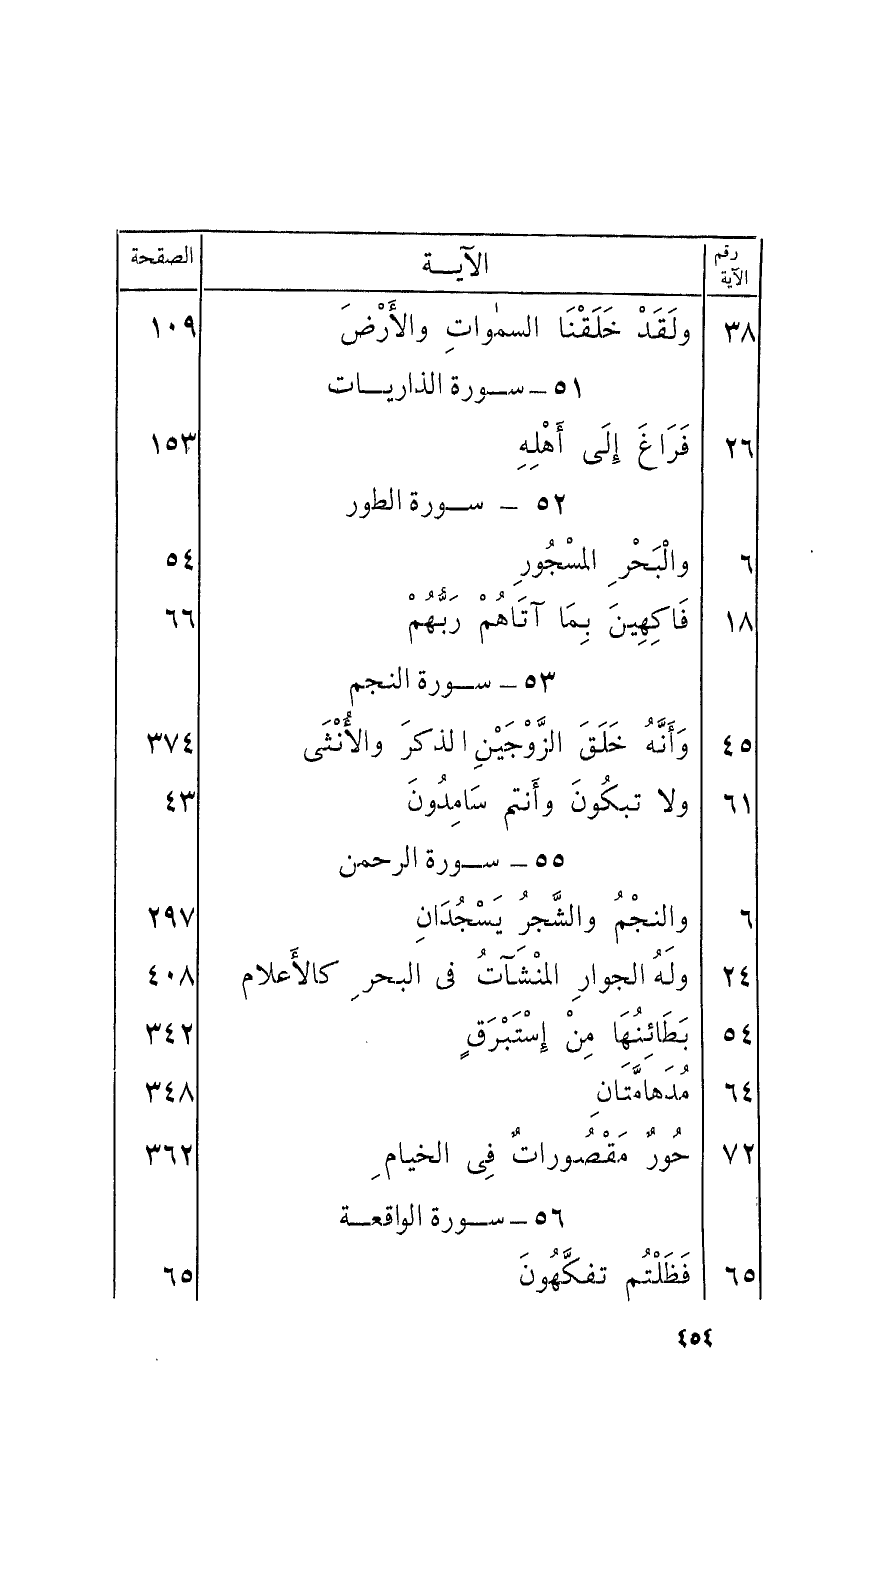 رقم الآية الآيــة الصفحة
٣٨ ولَقَدْ خَلَقْنَا السمٰواتِ والأَرْضَ ١٠٩
٥١ – ســورة الذاريــات
٢٦ فَرَاغَ إِلَى أَهْلِهِ ١٥٣
٥٢ – ســورة الطور
٦ والْبَحْرِ المسْجُورِ ٥٤
١٨ فَاكِهِينَ بِمَا آتَاهُمْ رَبُّهُمْ ٦٦
٥٣ – ســورة النجم
٤٥ وَأَنَّهُ خَلَقَ الزَّوْجَيْنِ الذكرَ والأُنْثَى ٣٧٤
٦١ ولا تبكُونَ وأَنتم سَامِدُونَ ٤٣
٥٥ – ســورة الرحمن
٦ والنجْمُ والشَّجرُ يَسْجُدَانِ ٢٩٧
٢٤ ولَهُ الجوارِ المنْشَآتُ فى البحرِ كالأَعلام ٤٠٨
٥٤ بَطَائِنُهَا مِنْ إِسْتَبْرَقٍ ٣٤٢
٦٤ مُدَهامَّتَانِ ٣٤٨
٧٢ حُورٌ مَقْصُوراتٌ فِى الخيامِ ٣٦٢
٥٦ – ســورة الواقعــة
٦٥ فَظَلْتُم تفكَّهُونَ ٦٥
٤٥٤